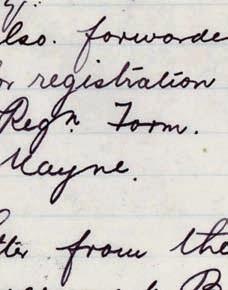 also. forwarde
or registration
Regn. Form.
Mayne.
tter from the